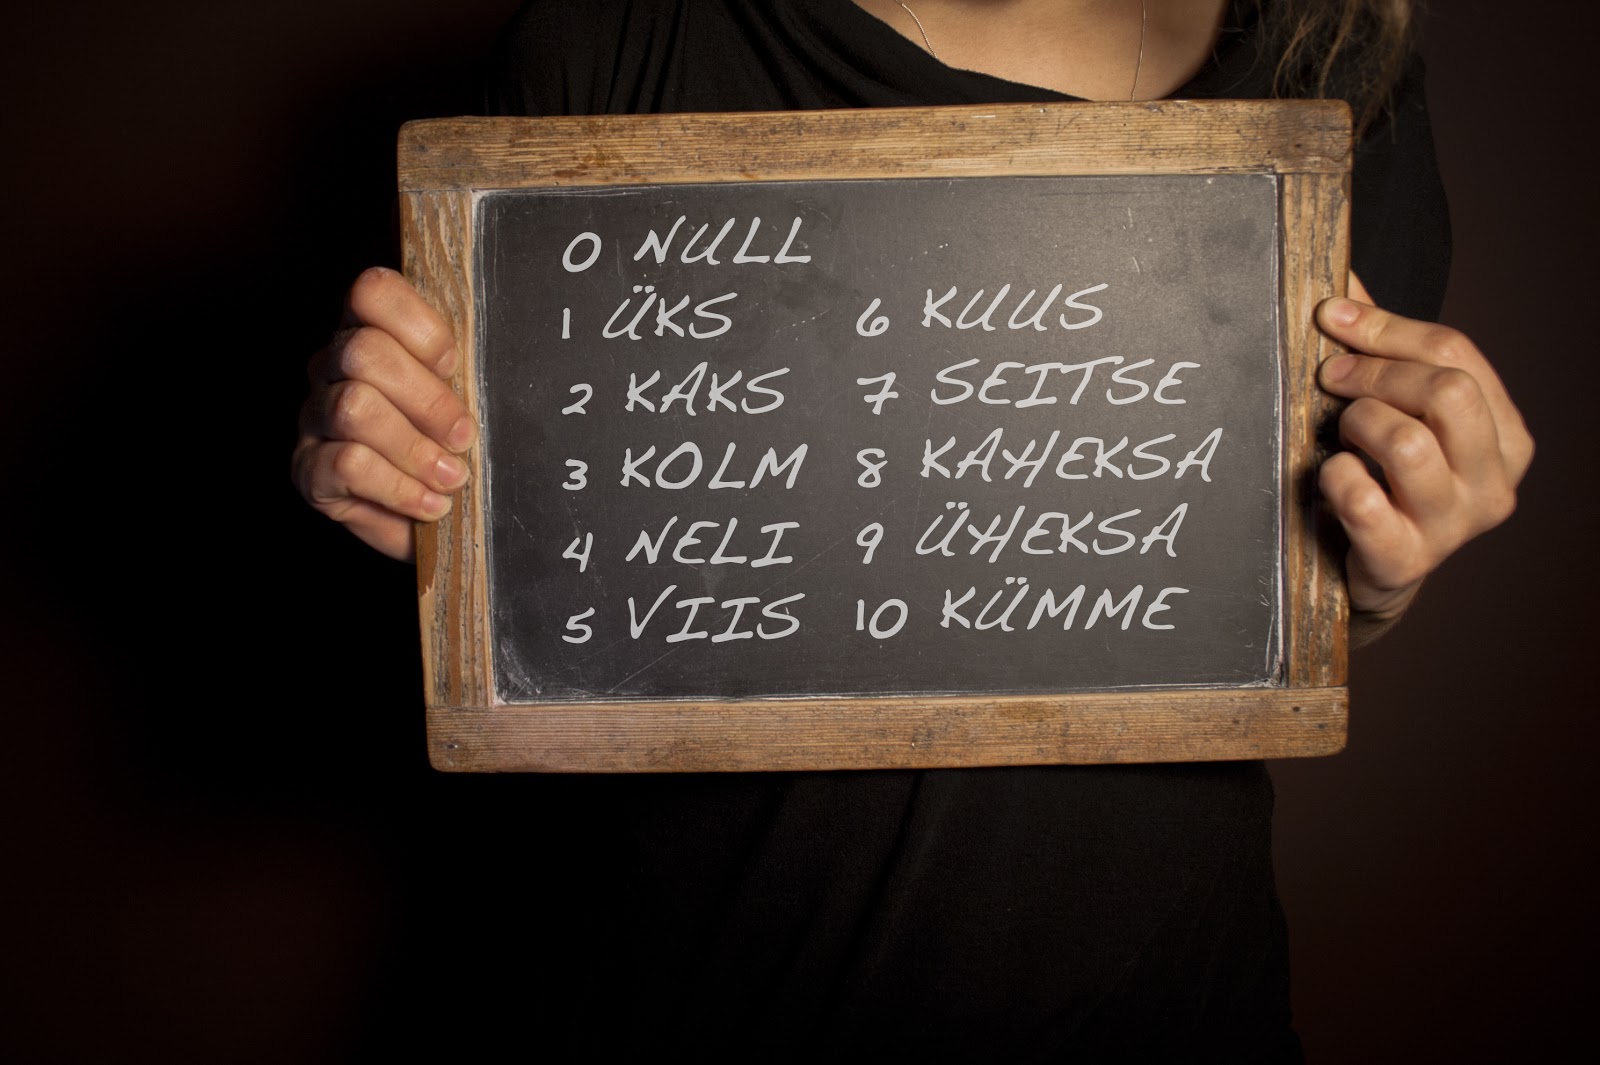 0 NULL
1 ÜKS
2 KAKS
3 KOLM
4 NELI
5 VIIS
6 KUUS
7 SEITSE
8 KAHEKSA
9 ÜHEKSA
10 KÜMME